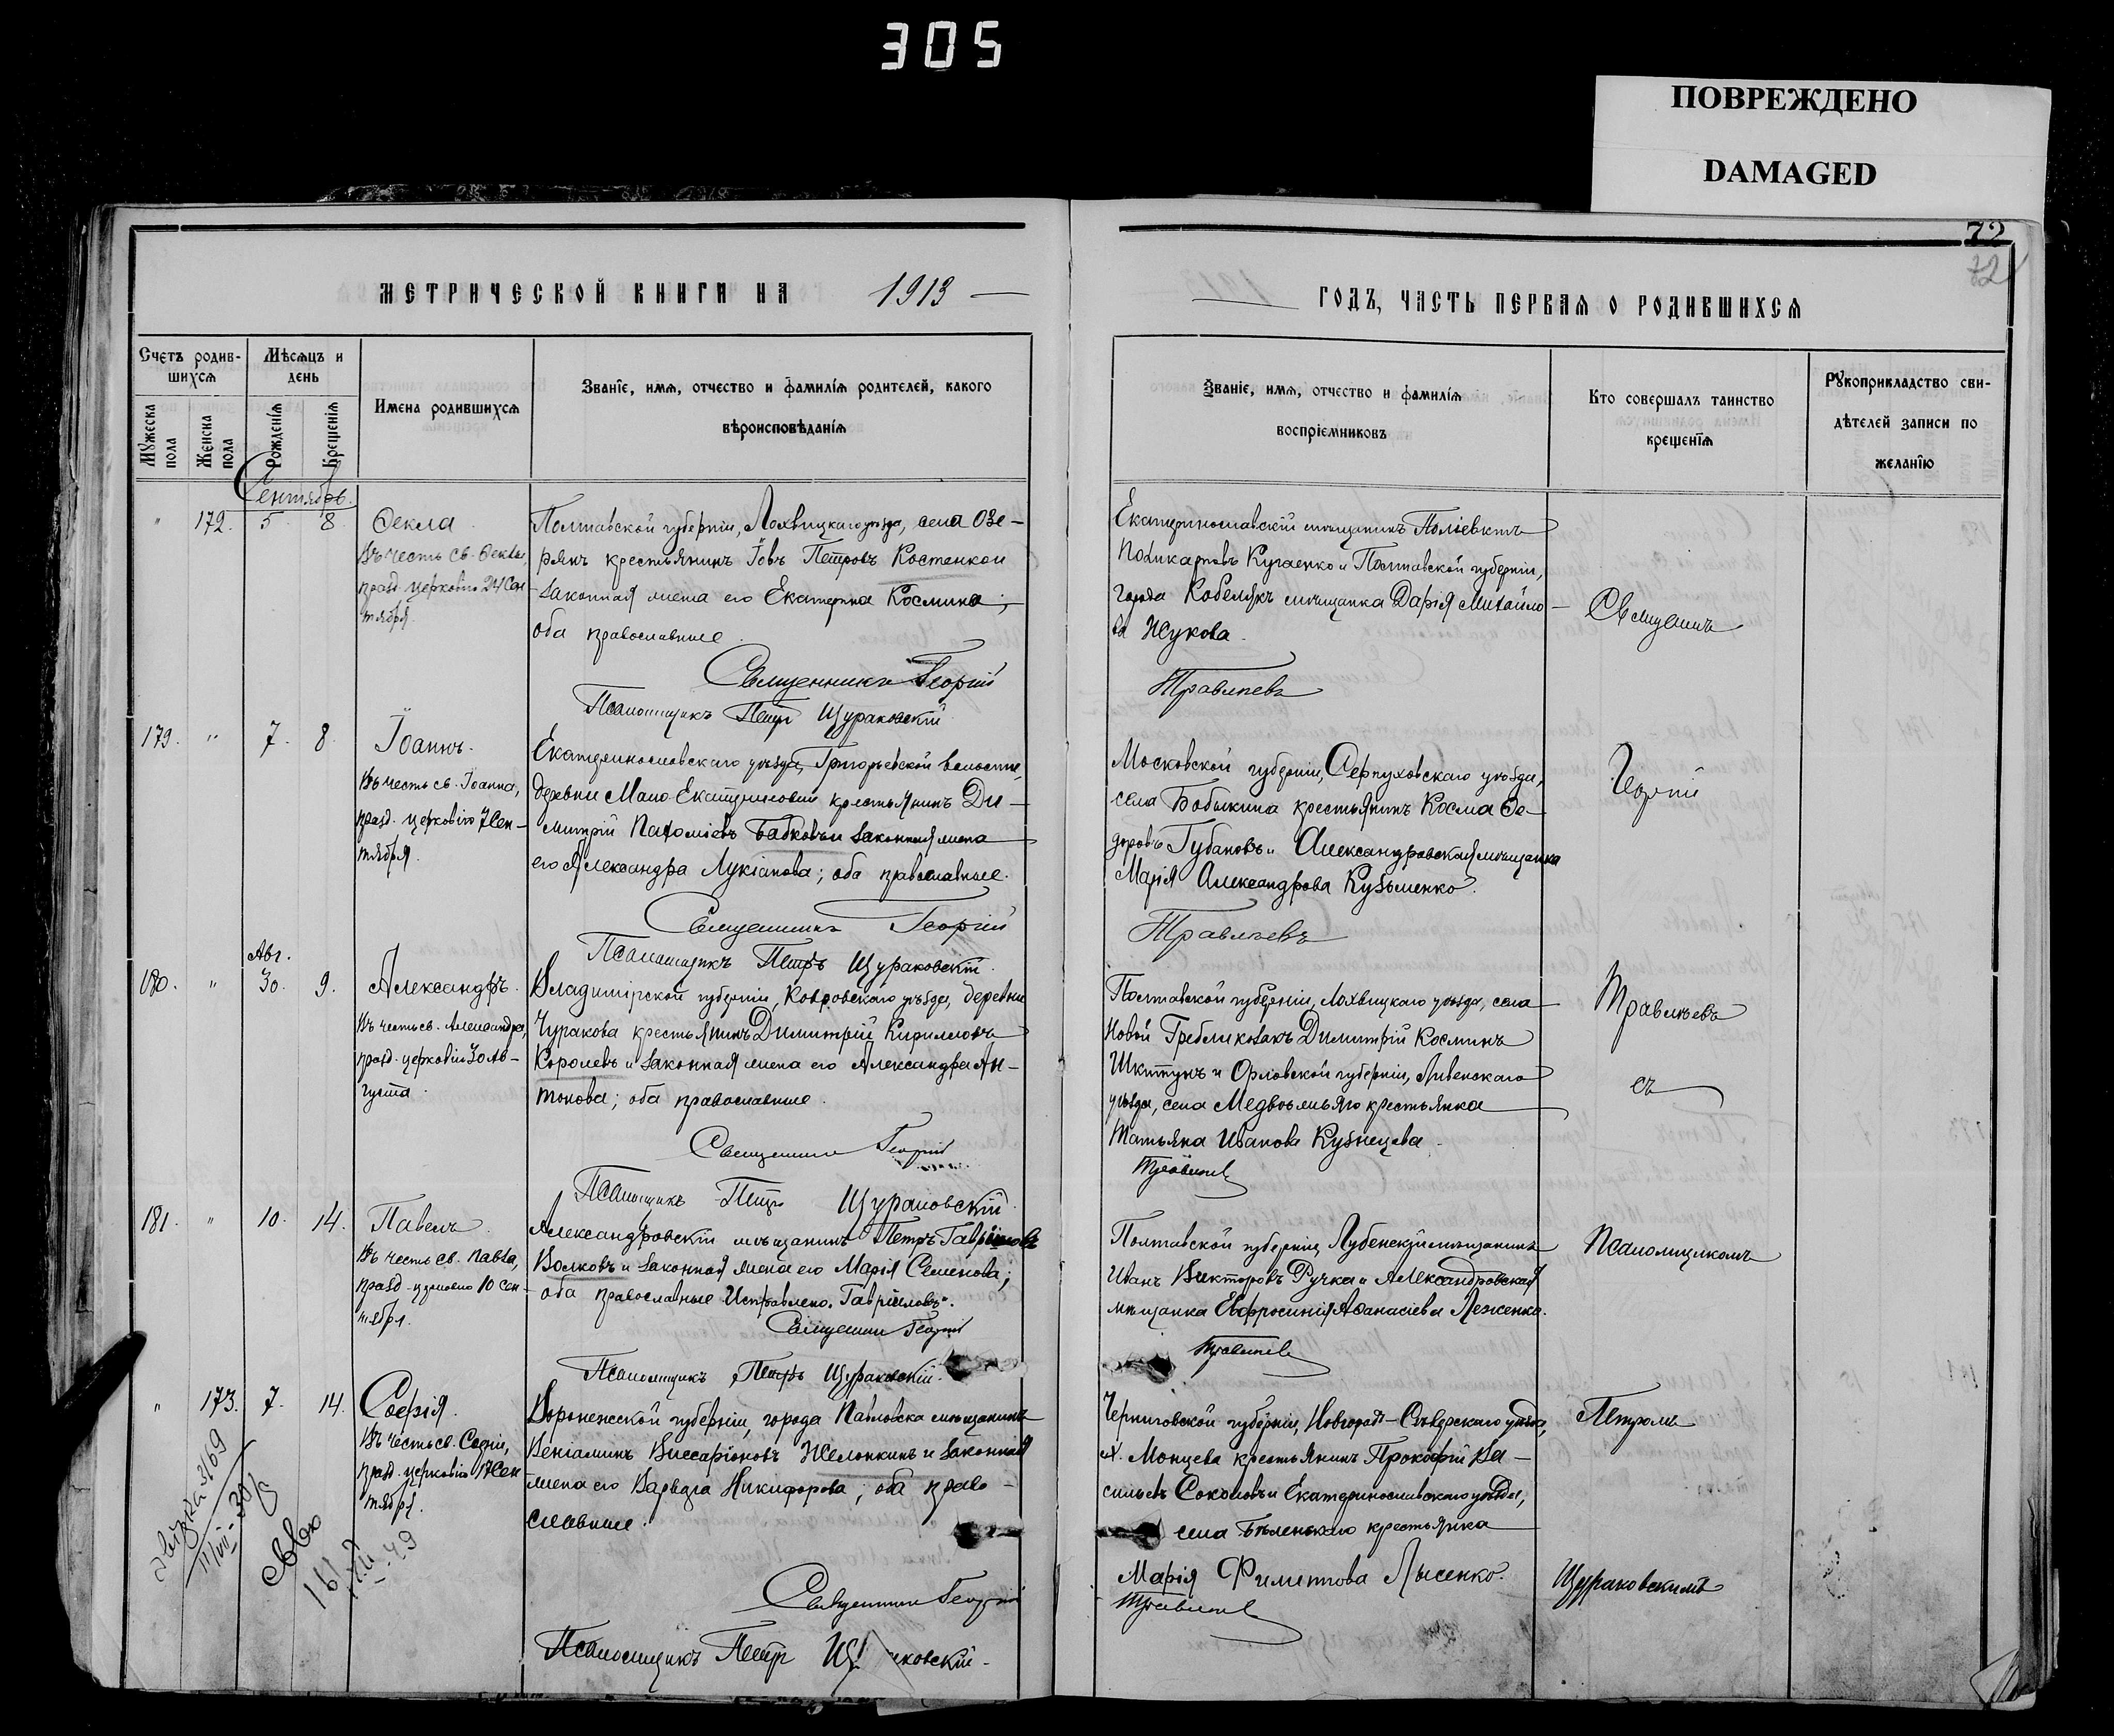 305
ПОВРЕЖДЕНО
DAMAGED
72
72
МЕТРИЧЕСКОЙ КНИГИ НА 1913
Счетъ родив-
шихся
Мужеска пола
Женска пола
Мѣсяцъ и
день
Рожденія
Крещенія
Имена родившихся
Званіе, имя, отчество и фамилія родителей, какого
вѣроисповѣданія
Сентябрь.
" 172. 5 8
Ѳекла
Въ честь св. Ѳеклы,
празд. церковію 24 Сен-
тября
Полтавской губерніи, Лохвицкаго уѣзда, села Озе-
рянъ крестьянинъ Іовъ Петровъ Костенко и
законная жена его Екатерина Космина;
оба православные.
Священникъ Георгій
Псаломщикъ Петръ Щураковскій
179. " 7. 8.
Іоаннъ.
Въ честь св. Іоанна,
празд. церковію 7 Сен-
тября.
Екатеринославскаго уѣзда, Григорьевской волости,
деревни Мало-Екатериновки крестьянинъ Ди-
митрій Пахоміевъ Бабковъ и законная жена
его Александра Лукіанова; оба православные.
Священникъ Георгій
Псаломщикъ Петръ Щураковскій.
Авг.
180. " 30. 9.
Александръ.
Въ честь св. Александра,
празд. церковію 30 Ав-
густа.
Владимірской губерніи, Ковровскаго уѣзда, деревни
Чуракова крестьянинъ Димитрій Кирилловъ
Королевъ и законная жена его Александра Ан-
тонова; оба православные.
Священникъ Георгій
Псаломщикъ Петръ Щураковскій
181. " 10. 14.
Павелъ.
Въ честь св. Павла,
празд. церковію 10 Сен-
тября.
Александровскій мѣщанинъ Петръ Гавріиловъ
Волковъ и законная жена его Марія Семенова;
оба православные Исправлено. Гавріиловъ".
Священникъ Георгій
Псаломщикъ Петръ Щураковскій.
" 173. 7. 14.
Софія.
Въ честь св. Софіи,
празд. церковію 17 Сен-
тября.
Воронежской губерніи, города Павловска мѣщанинъ
Веніаминъ Виссаріоновъ Желонкинъ и законная
жена его Варвара Никифорова; оба право-
славные.
Священникъ Георгій
Псаломщикъ Петръ Щ ковскій.
ГОДЪ, ЧАСТЬ ПЕРВАЯ О РОДИВШИХСЯ
Званіе, имя, отчество и фамилія
воспріемниковъ
Кто совершалъ таинство
крещенія
Рукоприкладство сви-
дѣтелей записи по
желанію
Екатеринославскій мѣщанинъ Поліевктъ
Поликарповъ Кугаенко и Полтавской губерніи,
города Кобелякъ мѣщанка Дарія Михайло-
ва Жукова.
Травлѣевъ
Священникъ
Московской губерніи, Серпуховскаго уѣзда,
села Бобыкина крестьянинъ Косма Ѳе-
доровъ Губановъ и Александровская мѣщанка
Марія Александрова Кузьменко.
Травлѣевъ
Георгій
Полтавской губерніи, Лохвицкаго уѣзда, села
Новой Гребли козакъ Димитрій Косминъ
Шкитунъ и Орловской губерніи, Ливенскаго
уѣзда, села Медвѣжьяго крестьянка
Татьяна Иванова Кузнецова.
Травлѣевъ
Травлѣевъ
съ
Полтавской губерніи, Лубенскій мѣщанинъ
Иванъ Викторовъ Ручка и Александровская
мѣщанка Евфросинія Аѳанасіева Леженко.
Травлѣевъ
Псаломщикомъ
Черниговской губерніи, Новгородъ-Сѣверскаго уѣзда,
м. Монцева крестьянинъ Прокофій Ва-
сильевъ Соколовъ и Екатеринославскаго уѣзда,
села Бѣленькаго крестьянка
Марія Филиппова Лысенко.
Травлѣевъ
Петромъ
Щураковскимъ